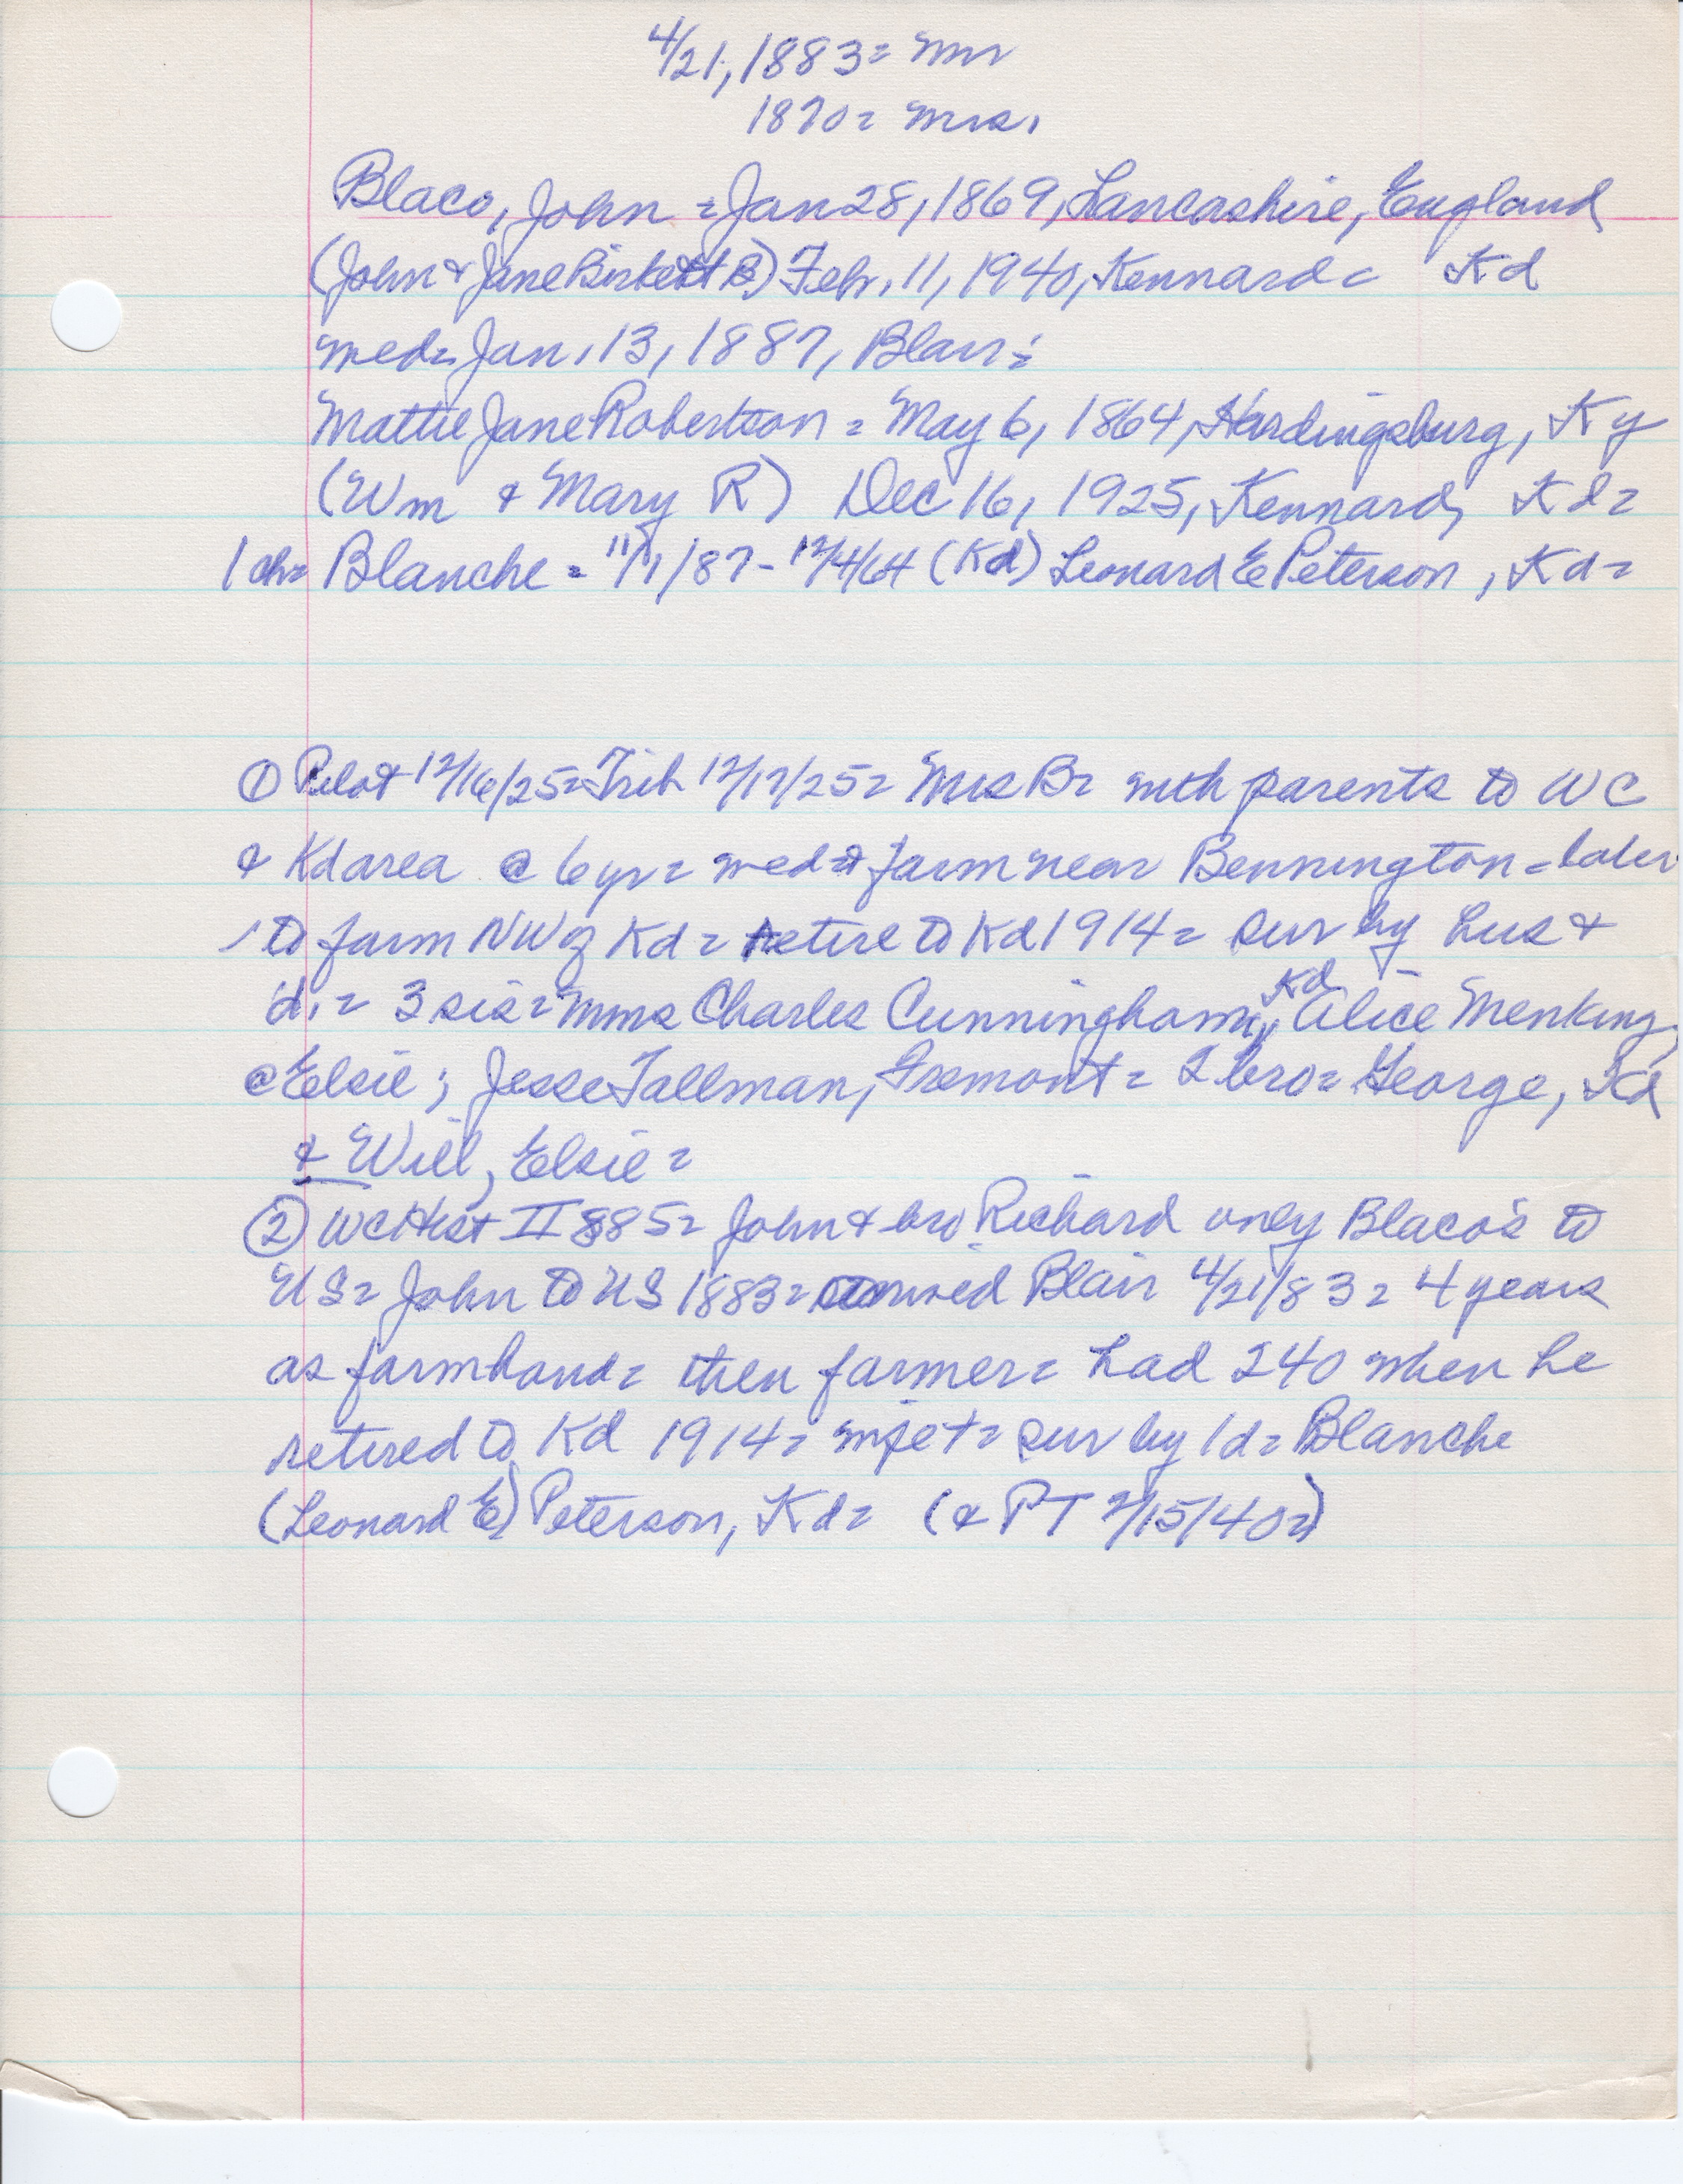 4/21, 1883 = Mr
1870 = Mrs.
Blaco, John = Jan 28, 1869, Lancashire, England
(John & Jane Birkett B) Febr. 11, 1940, Kennard = Kd
med = Jan. 13, 1887, Blair =
Mattie Jane Robertson = May 6, 1864, Hardingsburg, Ky
(Wm & Mary R) Dec 16, 1925, Kennard, Kd =
1 ch = Blanche = 11/1/87 - 12/4/64 (Kd) Leonard E Peterson, Kd =
① Pilot 12/16/25 = Trib 12/17/25 = Mrs B = with parents to WC
& Kd area @ 6 yr = med = farm near Bennington = later
to farm NW of Kd = retire to Kd 1914 = sur by hus &
d. = 3 sis = Mms Charles Cunningham, Kd, Alice Menking,
@ Elsie; Jesse Tallman, Fremont = 2 bro = George, Kd
& Will, Elsie =
② WC Hist II 885 = John & bro Richard only Blaco's to
US = John to US 1883 = arrived Blair 4/21/83 = 4 years
as farmhand = then farmer = had 240 when he
retired to Kd 1914 = = sur by 1 d = Blanche
(Leonard E) Peterson, Kd = (& PT 2/15/40 =)